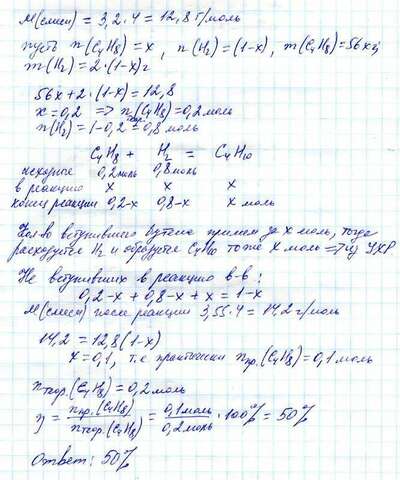 M(смеси) = 3,2 · 4 = 12,8 г/моль
пусть n(C₄H₈) = x, n(H₂) = (1-x), m(C₄H₈) = 56x г
m(H₂) = 2 · (1-x) г
56x + 2 · (1-x) = 12,8
x = 0,2 => n(C₄H₈) = 0,2 моль
n(H₂) = 1 - 0,2 = 0,8 моль
C₄H₈ + H₂ = C₄H₁₀
исходные 0,2 моль 0,8 моль
в реакцию x x x
конец реакции 0,2-x 0,8-x x моль
Кол-во вступившего бутена примем за x моль, тогда
расходуется H₂ и образуется C₄H₁₀ тоже x моль => из УХР
Не вступивших в реакцию в-в:
0,2-x + 0,8-x + x = 1-x
M(смеси) после реакции 3,55 · 4 = 14,2 г/моль
14,2 = 12,8 (1-x)
x = 0,1, т.е практически nпр.(C₄H₈) = 0,1 моль
nтеор.(C₄H₈) = 0,2 моль
η = nпр.(C₄H₈) / nтеор.(C₄H₈) = 0,1 моль / 0,2 моль · 100% = 50%
Ответ: 50%